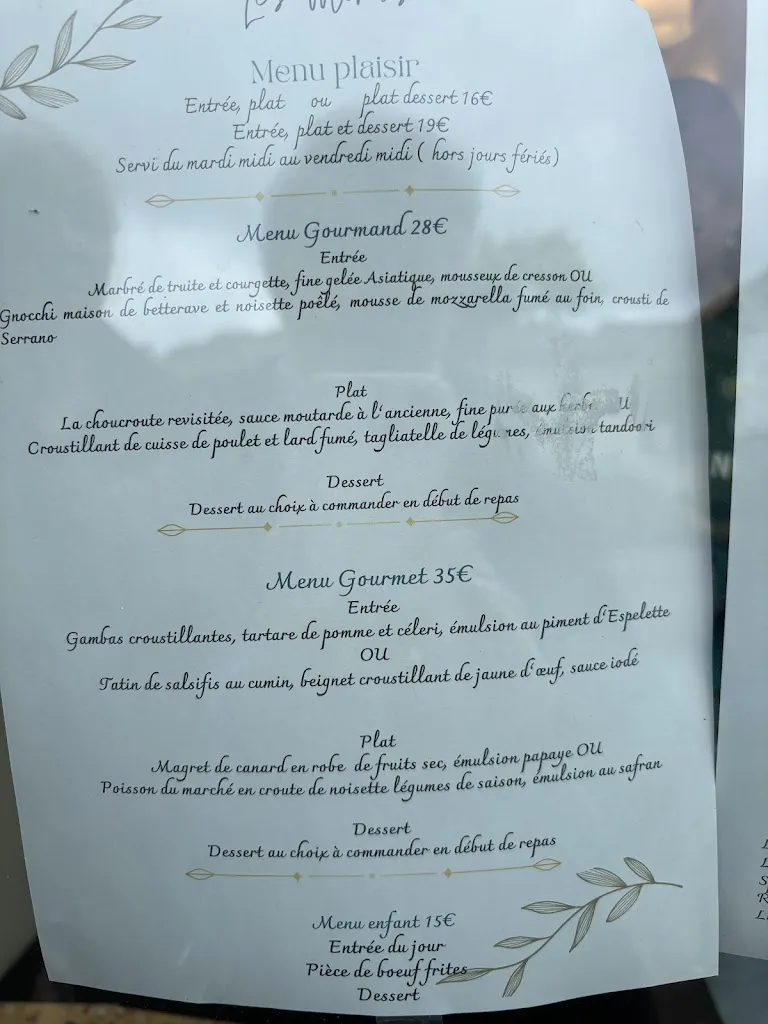 Menu plaisir
Entrée, plat ou plat dessert 16€
Entrée, plat et dessert 19€
Servi du mardi midi au vendredi midi ( hors jours fériés)
Menu Gourmand 28€
Entrée
Marbré de truite et courgette, fine gelée Asiatique, mousseux de cresson OU
Gnocchi maison de betterave et noisette poêlé, mousse de mozzarella fumé au foin, crousti de
Serrano
Plat
La choucroute revisitée, sauce moutarde à l'ancienne, fine purée aux
Croustillant de cuisse de poulet et lard fumé, tagliatelle de légumes, émulsion tandoori
Dessert
Dessert au choix à commander en début de repas
Menu Gourmet 35€
Entrée
Gambas croustillantes, tartare de pomme et céleri, émulsion au piment d'Espelette
OU
Tatin de salsifis au cumin, beignet croustillant de jaune d'œuf, sauce iodé
Plat
Magret de canard en robe de fruits sec, émulsion papaye OU
Poisson du marché en croute de noisette légumes de saison, émulsion au safran
Dessert
Dessert au choix à commander en début de repas
Menu enfant 15€
Entrée du jour
Pièce de boeuf frites
Dessert